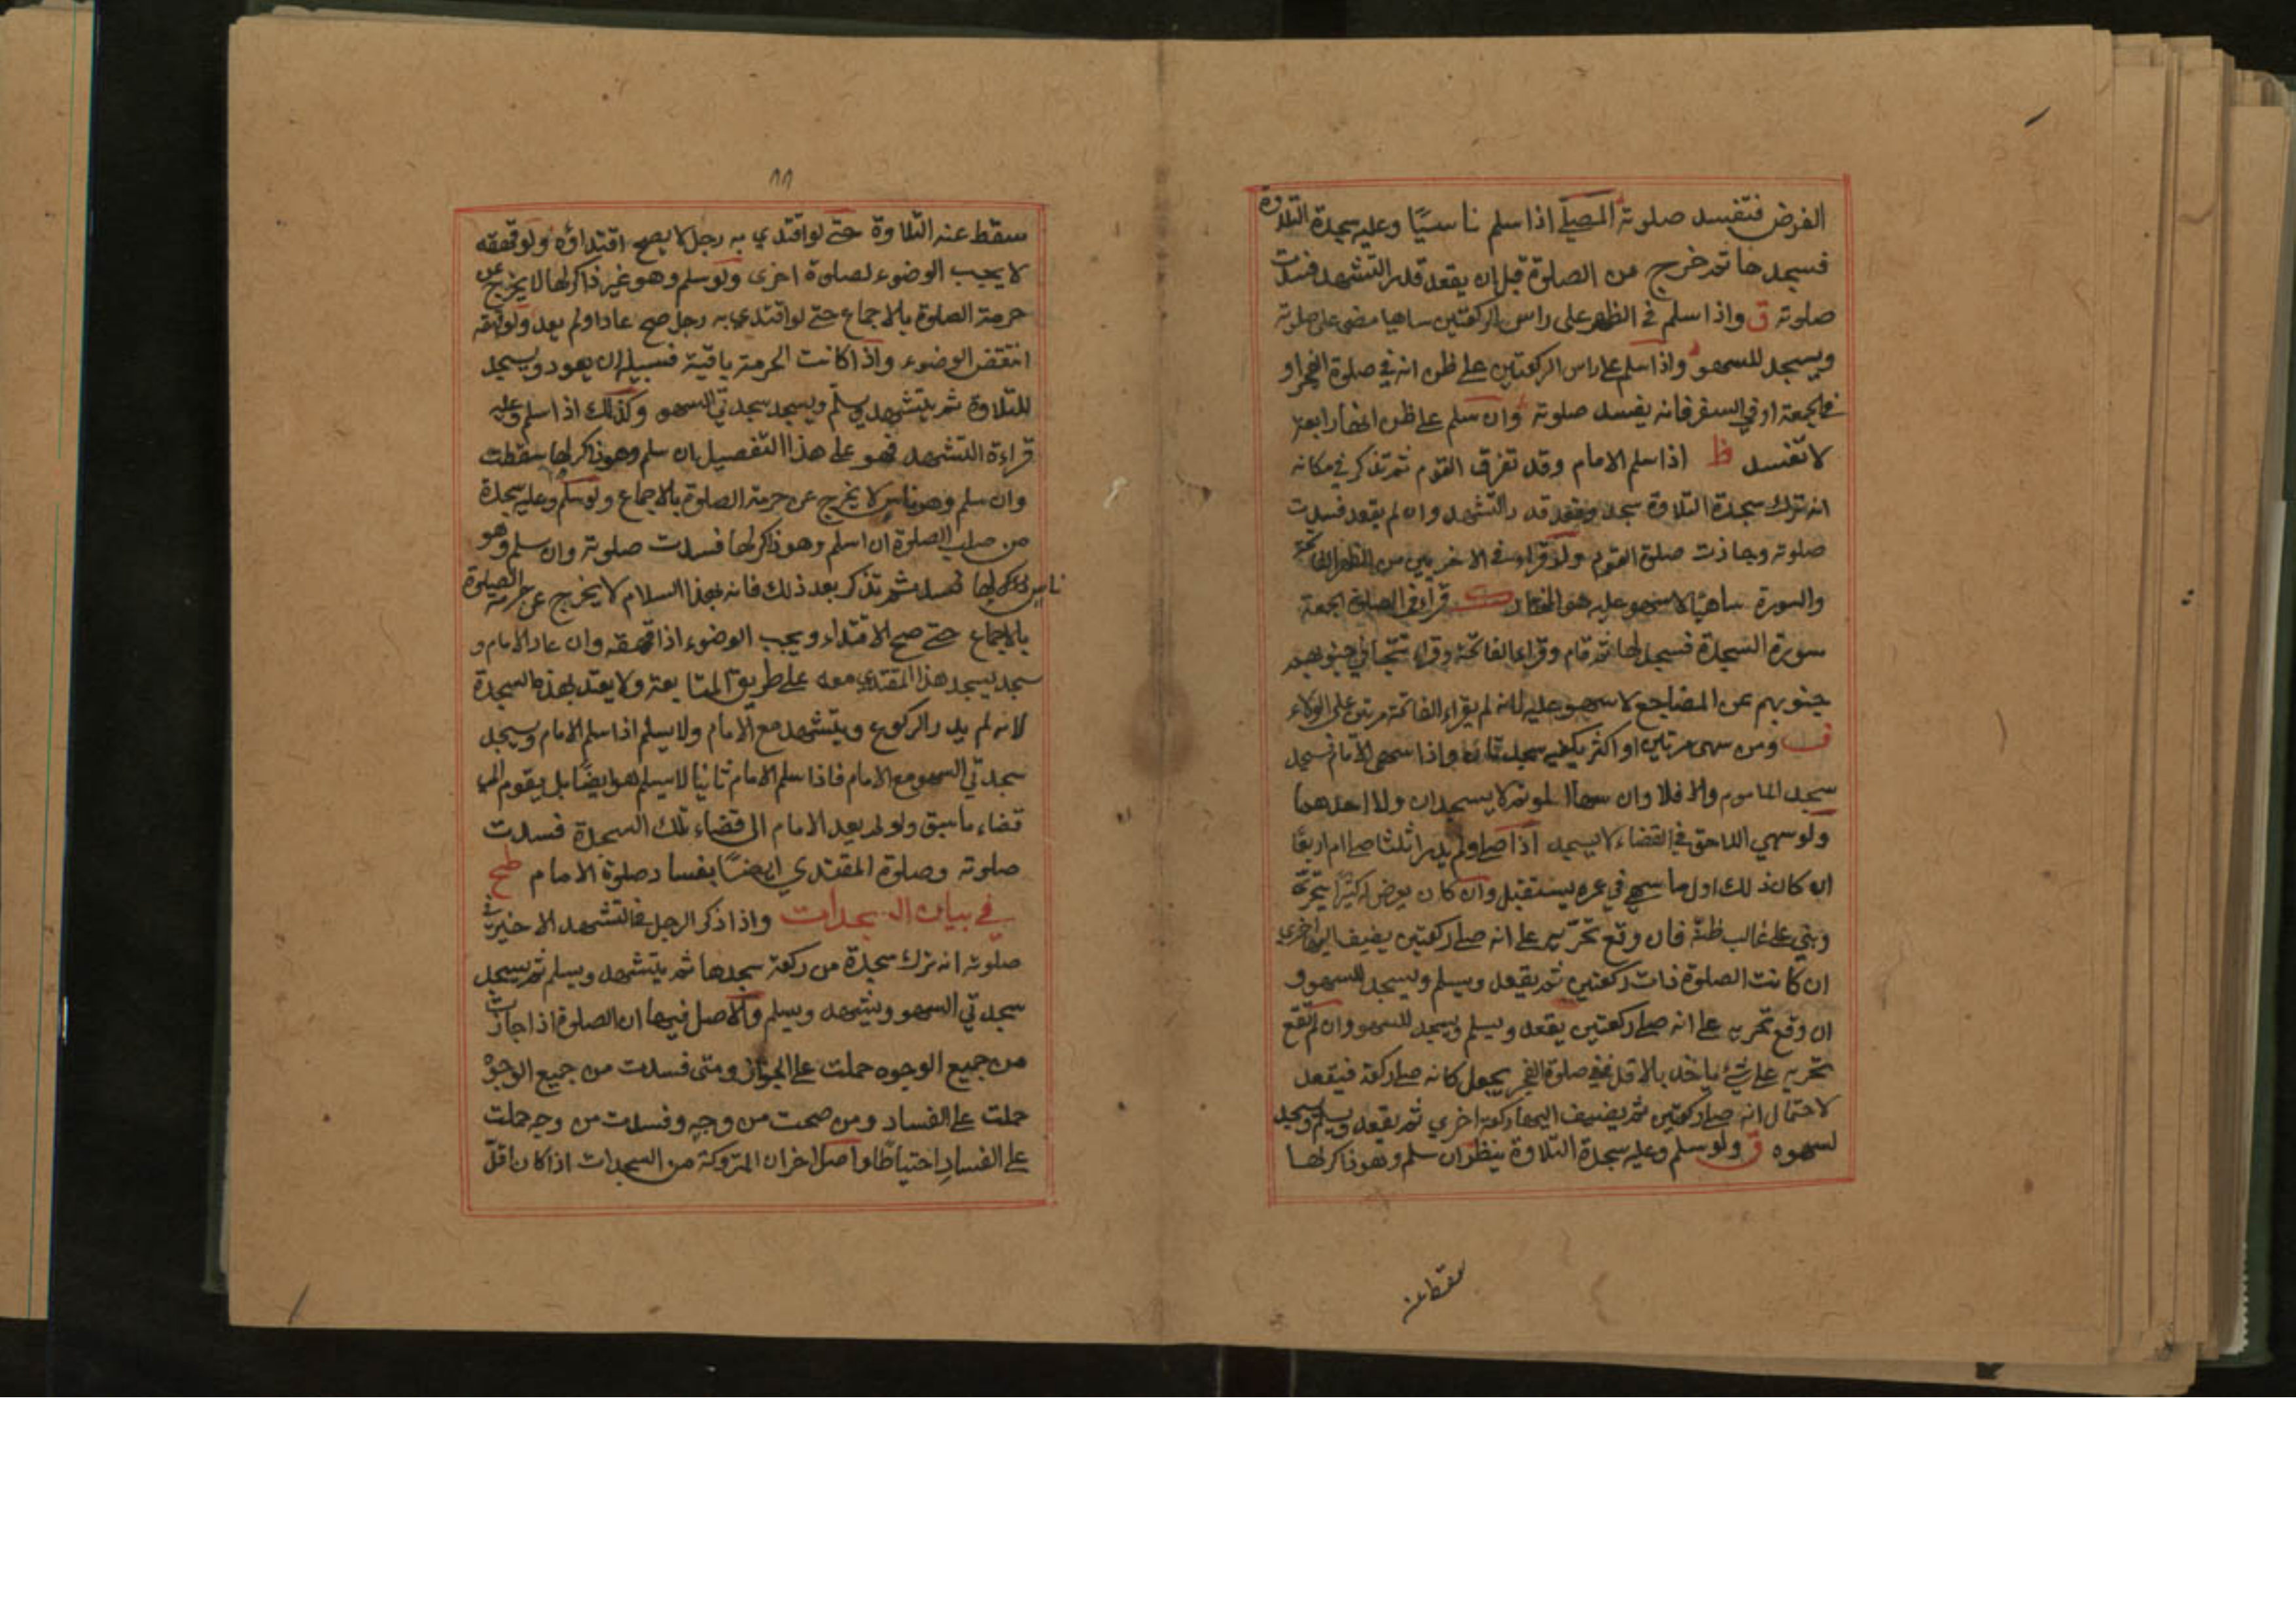 الفرض فتفسد صلوته المصلي اذا سلم ناسيًا وعليه سجدة التلاوة
فسجدها ثم خرج من الصلوة قبل ان يقعد قدر التشهد فسدت
صلوته ق واذا سلم في الظهر على راس الركعتين ساهيا مضى على صلوته
ويسجد للسهو واذا سلم على راس الركعتين على ظن انه في صلوة الفجر او
في الجمعة او في السفر فانه يفسد صلوته وان سلم على ظن انها رابعة
لا تفسد ظ اذا سلم الامام وقد تفرق القوم ثم تذكر في مكانه
انه ترك سجدة التلاوة سجد وقعد قدر التشهد وان لم يقعد فسدت
صلوته وجازت صلوة القوم ولو قراء في الاخريين من الظهر الفاتحة
والسورة ساهيًا لا سهو عليه هو المختار قرأ في الصلوة الجمعة
سورة السجدة فسجد لها ثم قام وقراء الفاتحة وقراء تتجافى جنوبهم
جنوبهم عن المضاجع لا سهو عليه لانه لم يقراء الفاتحة مرتين على الولاء
ف ومن سهى مرتين او اكثر يكفيه سجدتان واذا سهى الامام فسجد
سجد الماموم والا فلا وان سها الموتم لا يسجدان ولا احدهما
ولو سهي اللاحق في القضاء لا يسجد اذا صلى ولم يدر اثلثا صلى ام اربعًا
ان كان ذلك اول ما سهي في عمره يستقبل وان كان يعرض له كثيرًا يتحرى
وبني على غالب ظنه فان وقع تحريه على انه صلى ركعتين يضيف اليها اخرى
ان كانت الصلوة ذات ركعتين ثم يقعد ويسلم ويسجد للسهو و
ان وقع تحريه على انه صلى ركعتين يقعد ويسلم ويسجد للسهو وان لم تقع
تحريه على شئ ياخذ بالاقل ففي صلوة الفجر يجعل كانه صلى ركعة فيقعد
لاحتمال انه صلى ركعتين ثم يضيف اليها ركعة اخري ثم يقعد ويسلم ويسجد
لسهوه ق ولو سلم وعليه سجدة التلاوة ينظر ان سلم وهو ذاكر لها
سقط عنه
٨٨
سقط عنه التلاوة حتى لو اقتدي به رجل لا يصح اقتداؤه ولو قهقه
لا يجب الوضوء لصلوة اخرى ولو سلم وهو غير ذاكر لها لا يخرج عن
حرمة الصلوة بالاجماع حتى لو اقتدي به رجل صح عاد او لم يعد ولو قهقه
انتقض الوضوء واذا كانت الحرمة باقية فسبيله ان يعود ويسجد
للتلاوة ثم يتشهد ويسلم ويسجد سجدتي السهو وكذلك اذا سلم وعليه
قراءة التشهد فهو على هذا التفصيل ان سلم وهو ذاكر لها سقطت
وان سلم وهو ناس لا يخرج عن حرمة الصلوة بالاجماع ولو سلم وعليه سجدة
من صلب الصلوة ان سلم وهو ذاكر لها فسدت صلوته وان سلم وهو
ناس ثم تذكر بعد ذلك فانه بهذا السلام لا يخرج عن حرمة الصلوة
بالاجماع حتى صح الاقتداء ويجب الوضوء اذا قهقه وان عاد الامام و
سجد يسجد هذا المقتدي معه على طريق المتابعة ولا يعتد بهذه السجدة
لانه لم يدر الركوع ويتشهد مع الامام ولا يسلم اذا سلم الامام ويسجد
سجدتي السهو مع الامام فاذا سلم الامام ثانيا لا يسلم هو ايضًا بل يقوم الى
قضاء ما سبق ولو لم يعد الامام الى قضاء تلك السجدة فسدت
صلوته وصلوة المقتدي ايضًا بفساد صلوة الامام طح
في بيان السجدات واذا ذكر الرجل في التشهد الاخير في
صلوته انه ترك سجدة من ركعة سجدها ثم يتشهد ويسلم ثم يسجد
سجدتي السهو ويتشهد ويسلم والاصل فيها ان الصلوة اذا جازت
من جميع الوجوه حملت على الجواز ومتى فسدت من جميع الوجوه
حملت على الفساد ومن صحت من وجه وفسدت من وجه حملت
على الفساد احتياطًا واصل اخر ان المتروكة من السجدات اذا كان اقل